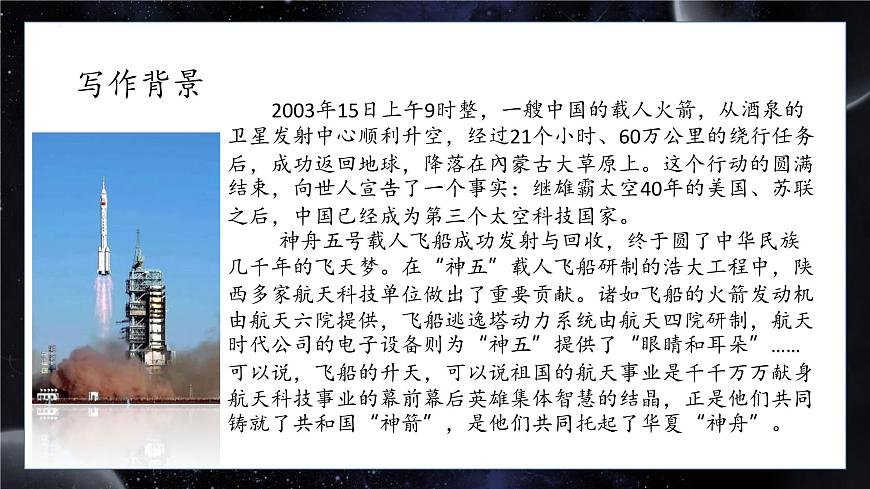 写作背景
2003年15日上午9时整，一艘中国的载人火箭，从酒泉的
卫星发射中心顺利升空，经过21个小时、60万公里的绕行任务
后，成功返回地球，降落在内蒙古大草原上。这个行动的圆满
结束，向世人宣告了一个事实：继雄霸太空40年的美国、苏联
之后，中国已经成为第三个太空科技国家。
神舟五号载人飞船成功发射与回收，终于圆了中华民族
几千年的飞天梦。在“神五”载人飞船研制的浩大工程中，陕
西多家航天科技单位做出了重要贡献。诸如飞船的火箭发动机
由航天六院提供，飞船逃逸塔动力系统由航天四院研制，航天
时代公司的电子设备则为“神五”提供了“眼睛和耳朵”……
可以说，飞船的升天，可以说祖国的航天事业是千千万万献身
航天科技事业的幕前幕后英雄集体智慧的结晶，正是他们共同
铸就了共和国“神箭”，是他们共同托起了华夏“神舟”。